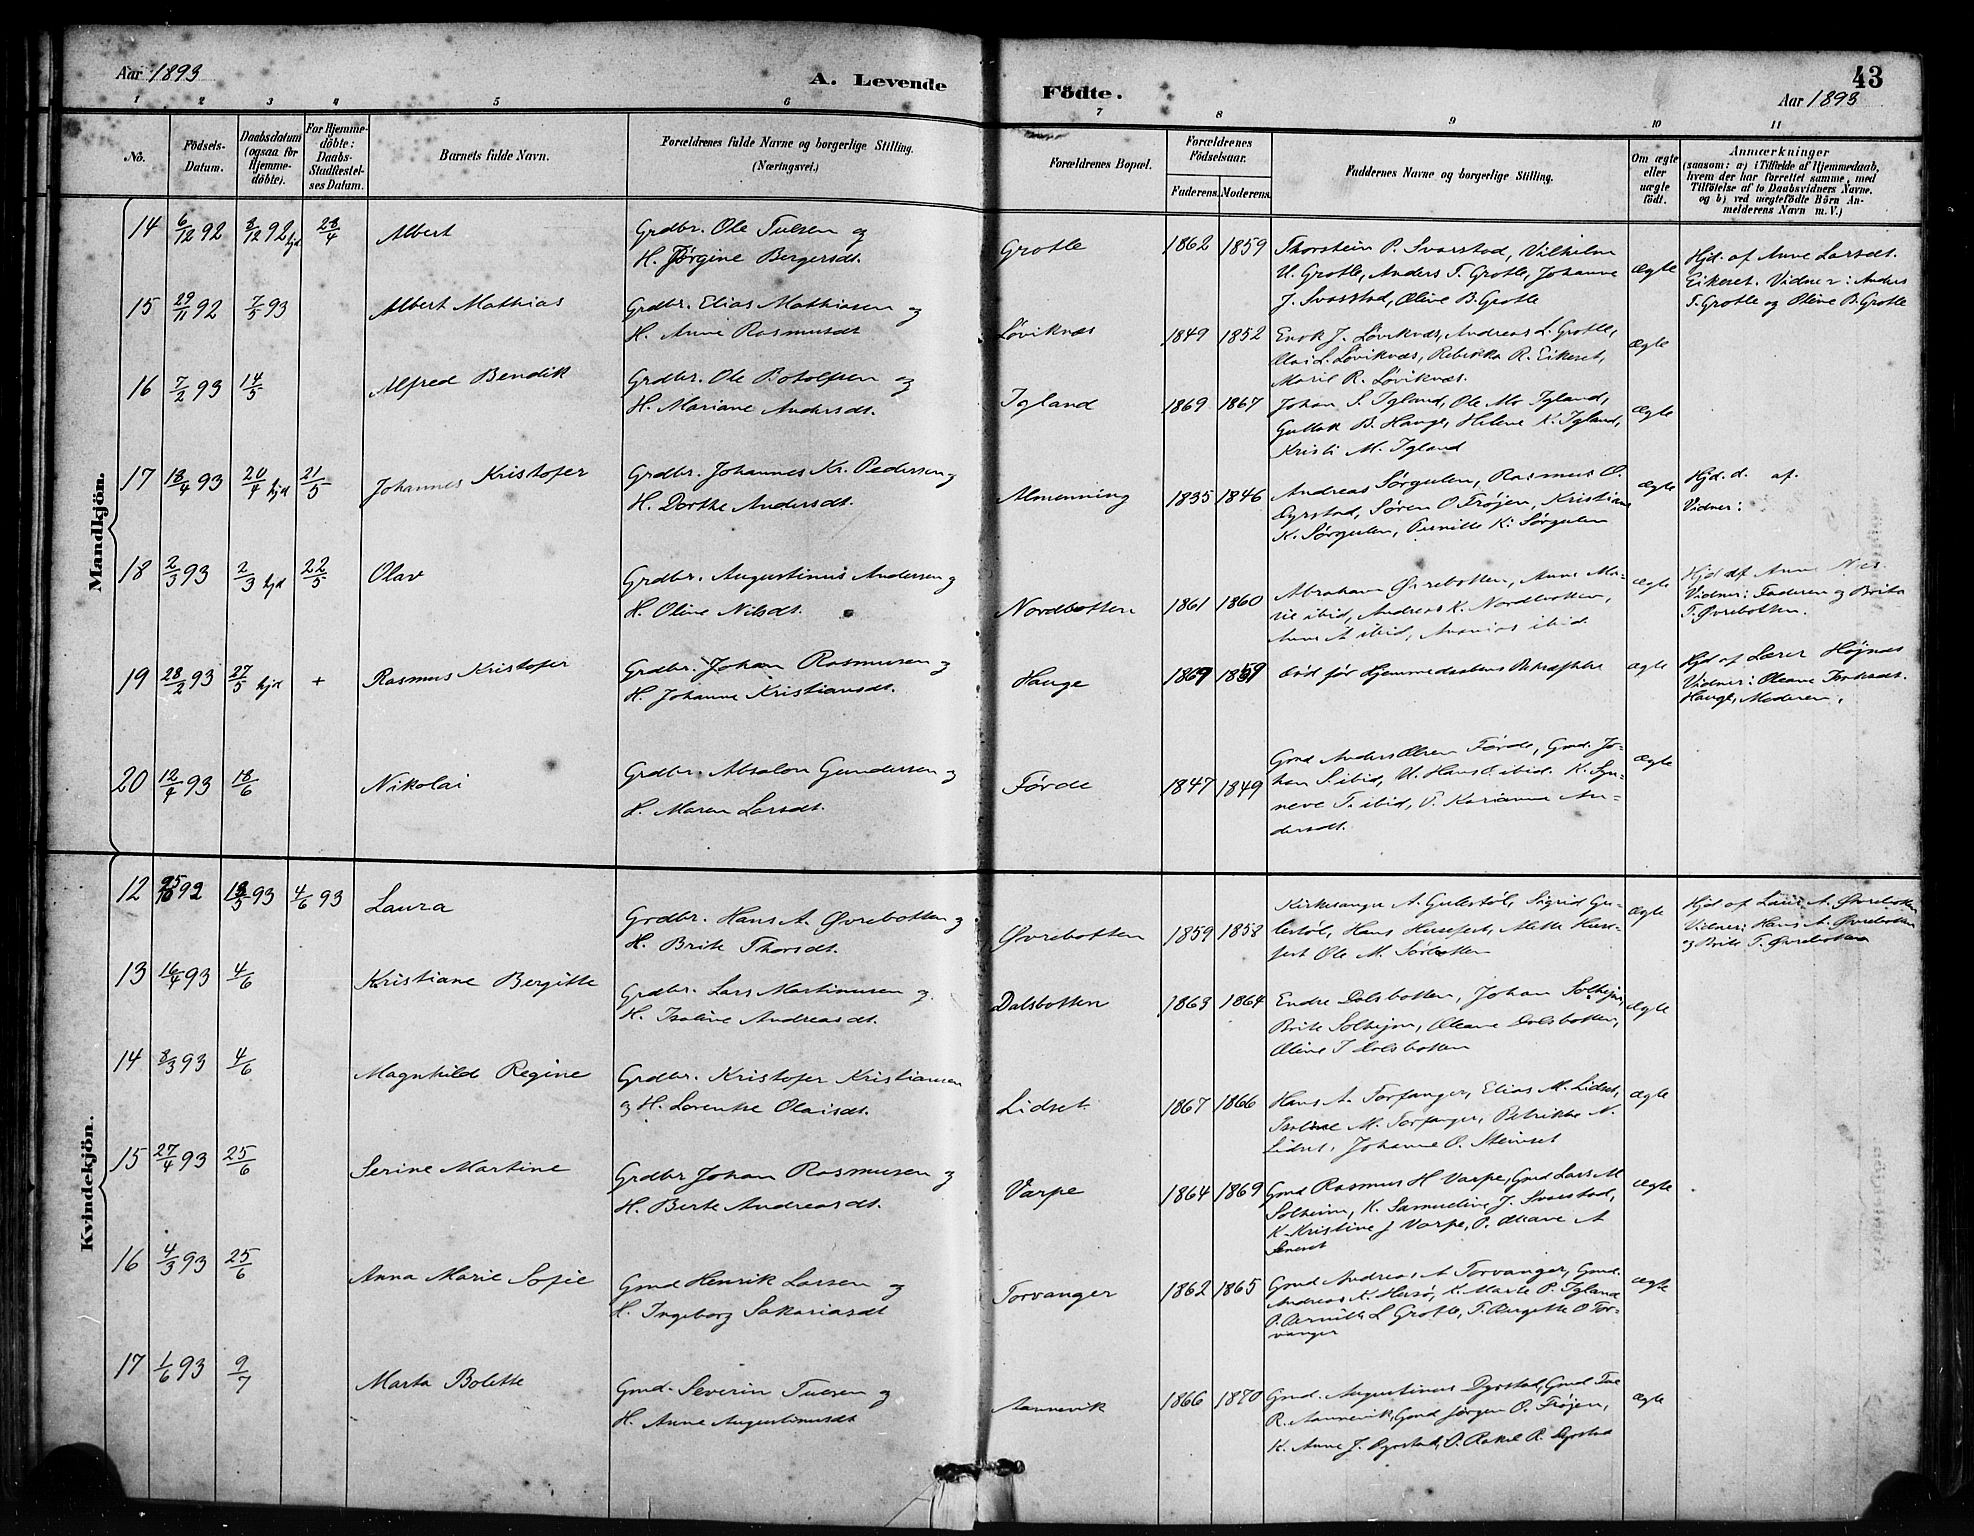 Aar 1893
A. Levende
Födte.
43
Aar 1893
1 2 3 4 5 6 7 8 9 10 11
No.
Födsels-Datum.
Daabsdatum (ogsaa for Hjemme-döbte).
For Hjemme-döbte: Daabs-Stadfæstel-ses Datum.
Barnets fulde Navn.
Forældrenes fulde Navne og borgerlige Stilling. (Næringsvei.)
Forældrenes Bopæl.
Forældrenes Födselsaar.
Faderens. Moderens.
Faddernes Navne og borgerlige Stilling.
Om ægte eller uægte födt.
Anmærkninger
(saasom: a) i Tilfælde af Hjemmedaab,
hvem der har forrettet samme, med
Tilföielse af to Daabsvidners Navne,
og b) ved uægtefödte Börn An-
melderens Navn m. V.)
Mandkjön.
14 6/12 92 8/12 92 hjd 23/4 Albert
Grdbr. Ole Tuesen og
H. Jørgine Bergersdt.
Grotle 1862 1859
Thorstein P. Svarstad, Vilhelm
U. Grotle, Anders T. Grotle, Johanne
J. Svarstad, Oline B. Grotle
ægte
Hjd. af Anne Larsdt.
Eikeset. Vidner: Anders
T. Grotle og Oline B. Grotle
15 29/11 92 7/5 93 Albert Mathias
Grdbr. Elias Mathiasen og
H. Anne Rasmusdt
Løviknæs 1849 1852
Enok J. Løviknæs, Andreas L. Grotle,
L. Løviknæs, Rebekka R. Eikeset,
Marie R. Løviknæs.
ægte
16 7/2 93 14/5 Alfred Bendik
Grdbr. Ole Botolfsen og
H. Mariane Andersdt.
Igland 1869 1867
Johan S. Igland, Ole M. Igland,
B. Hauge, Helene K. Igland,
Kristi M. Igland
ægte
17 18/4 93 24/4 hjd 21/5 Johannes Kristofer
Grdbr. Johannes Kr. Pedersen og
H. Dorthe Andersdt.
Almenning 1835 1846
Andreas Sørgulen, Rasmus O.
Dyrstad, Søren O Frøjen, Kristiane
K. Sørgulen, Pernille K. Sørgulen
ægte
Hjd. d. af.
Vidner:
18 2/3 93 2/3 hjd 22/5 Olav
Grdbr. Augustinus Andersen og
H. Oline Nilsdt.
Nordbotten 1861 1860
Abraham Øvrebotten, Anne Ma-
rie ibid, Andreas K. Nordbotten,
Anne A ibid, Ananias ibid
ægte
Hjd af Anne
Vidner: Faderen og Brita
T. Øvrebotten.
19 28/2 93 27/5 hjd + Rasmus Kristofer
Grdbr. Johan Rasmusen og
H. Johanne Kristiansdt.
Hauge 1869 1859
død før Hjemmedaabens Bekræftelse
ægte
Hjd af Lærer Højnæs
Vidner: Oleane
Hauge, Moderen.
20 12/4 93 18/6 Nikolai
Grdbr. Absalon Gundersen og
H. Maren Larsdt.
Førde 1847 1849
Gmd Anders Olsen Førde, Gmd. Jo-
han S. ibid, U. Hans ibid. K. Sy-
neve T. ibid, P. Karianne An-
dersdt.
ægte
Kvindekjön.
12 25/10 92 19/3 93 4/6 93 Laura
Grdbr. Hans A. Øvrebotten og
H. Brite Thorsdt.
Øvrebotten 1859 1858
Kirkesanger A. Gulestøl, Sigrid Gu-
lestøl, Hans Husefest, Mette Huse-
fest Ole M. Sørbotten
ægte
Hjd af A. Øvrebotten
Vidner: Hans A. Øvrebotten
og Brite T. Øvrebotten
13 16/4 93 4/6 Kristiane Bergitte
Grdbr. Lars Martinusen og
H. Isoline Andreasdt.
Dalsbotten 1863 1864
Endre Dalsbotten, Johan Solhejm,
Brite Solhejm, Oleane Dalsbotten,
Oline J Dalsbotten
ægte
14 8/3 93 4/6 Magnhilde Regine
Grdbr. Kristofer Kristiansen
og H. Lorentse Olaisdt.
Lidset 1867 1866
Hans A. Torfanger, Elias M. Lidset,
M. Torfanger, Petrikke N.
Lidset, Johanne O. Steinset
ægte
15 27/4 93 25/6 Serine Martine
Grdbr Johan Rasmusen og
H. Berte Andreasdt.
Varpe 1864 1869
Gmd Rasmus H Varpe, Gmd Lars M
Solheim, K. Samueline J. Svarstad,
K. Kristine J Varpe, P. Oleane A
ægte
16 4/3 93 25/6 Anna Marie Sofie
Gmd Henrik Larsen og
H. Ingeborg Sakariasdt
Torvanger 1862 1865
Gmd Andreas A Torvanger, Gmd.
Andreas K. Husø, K. Marte P. Igland
P. Pernille L Grotle, P. Bergitte O Tor-
vanger
ægte
17 1/6 93 9/7 Marta Bolette
Gmd. Severin Tuesen og
H. Anne Augustinusdt
Aannevik 1866 1870
Gmd. Augustinus Dyrstad, Gmd Tue
R. Aannevik, Gmd Jørgen O. Frøjen,
K. Anne J. Dyrstad, P. Rakel R. Dyrstad
ægte